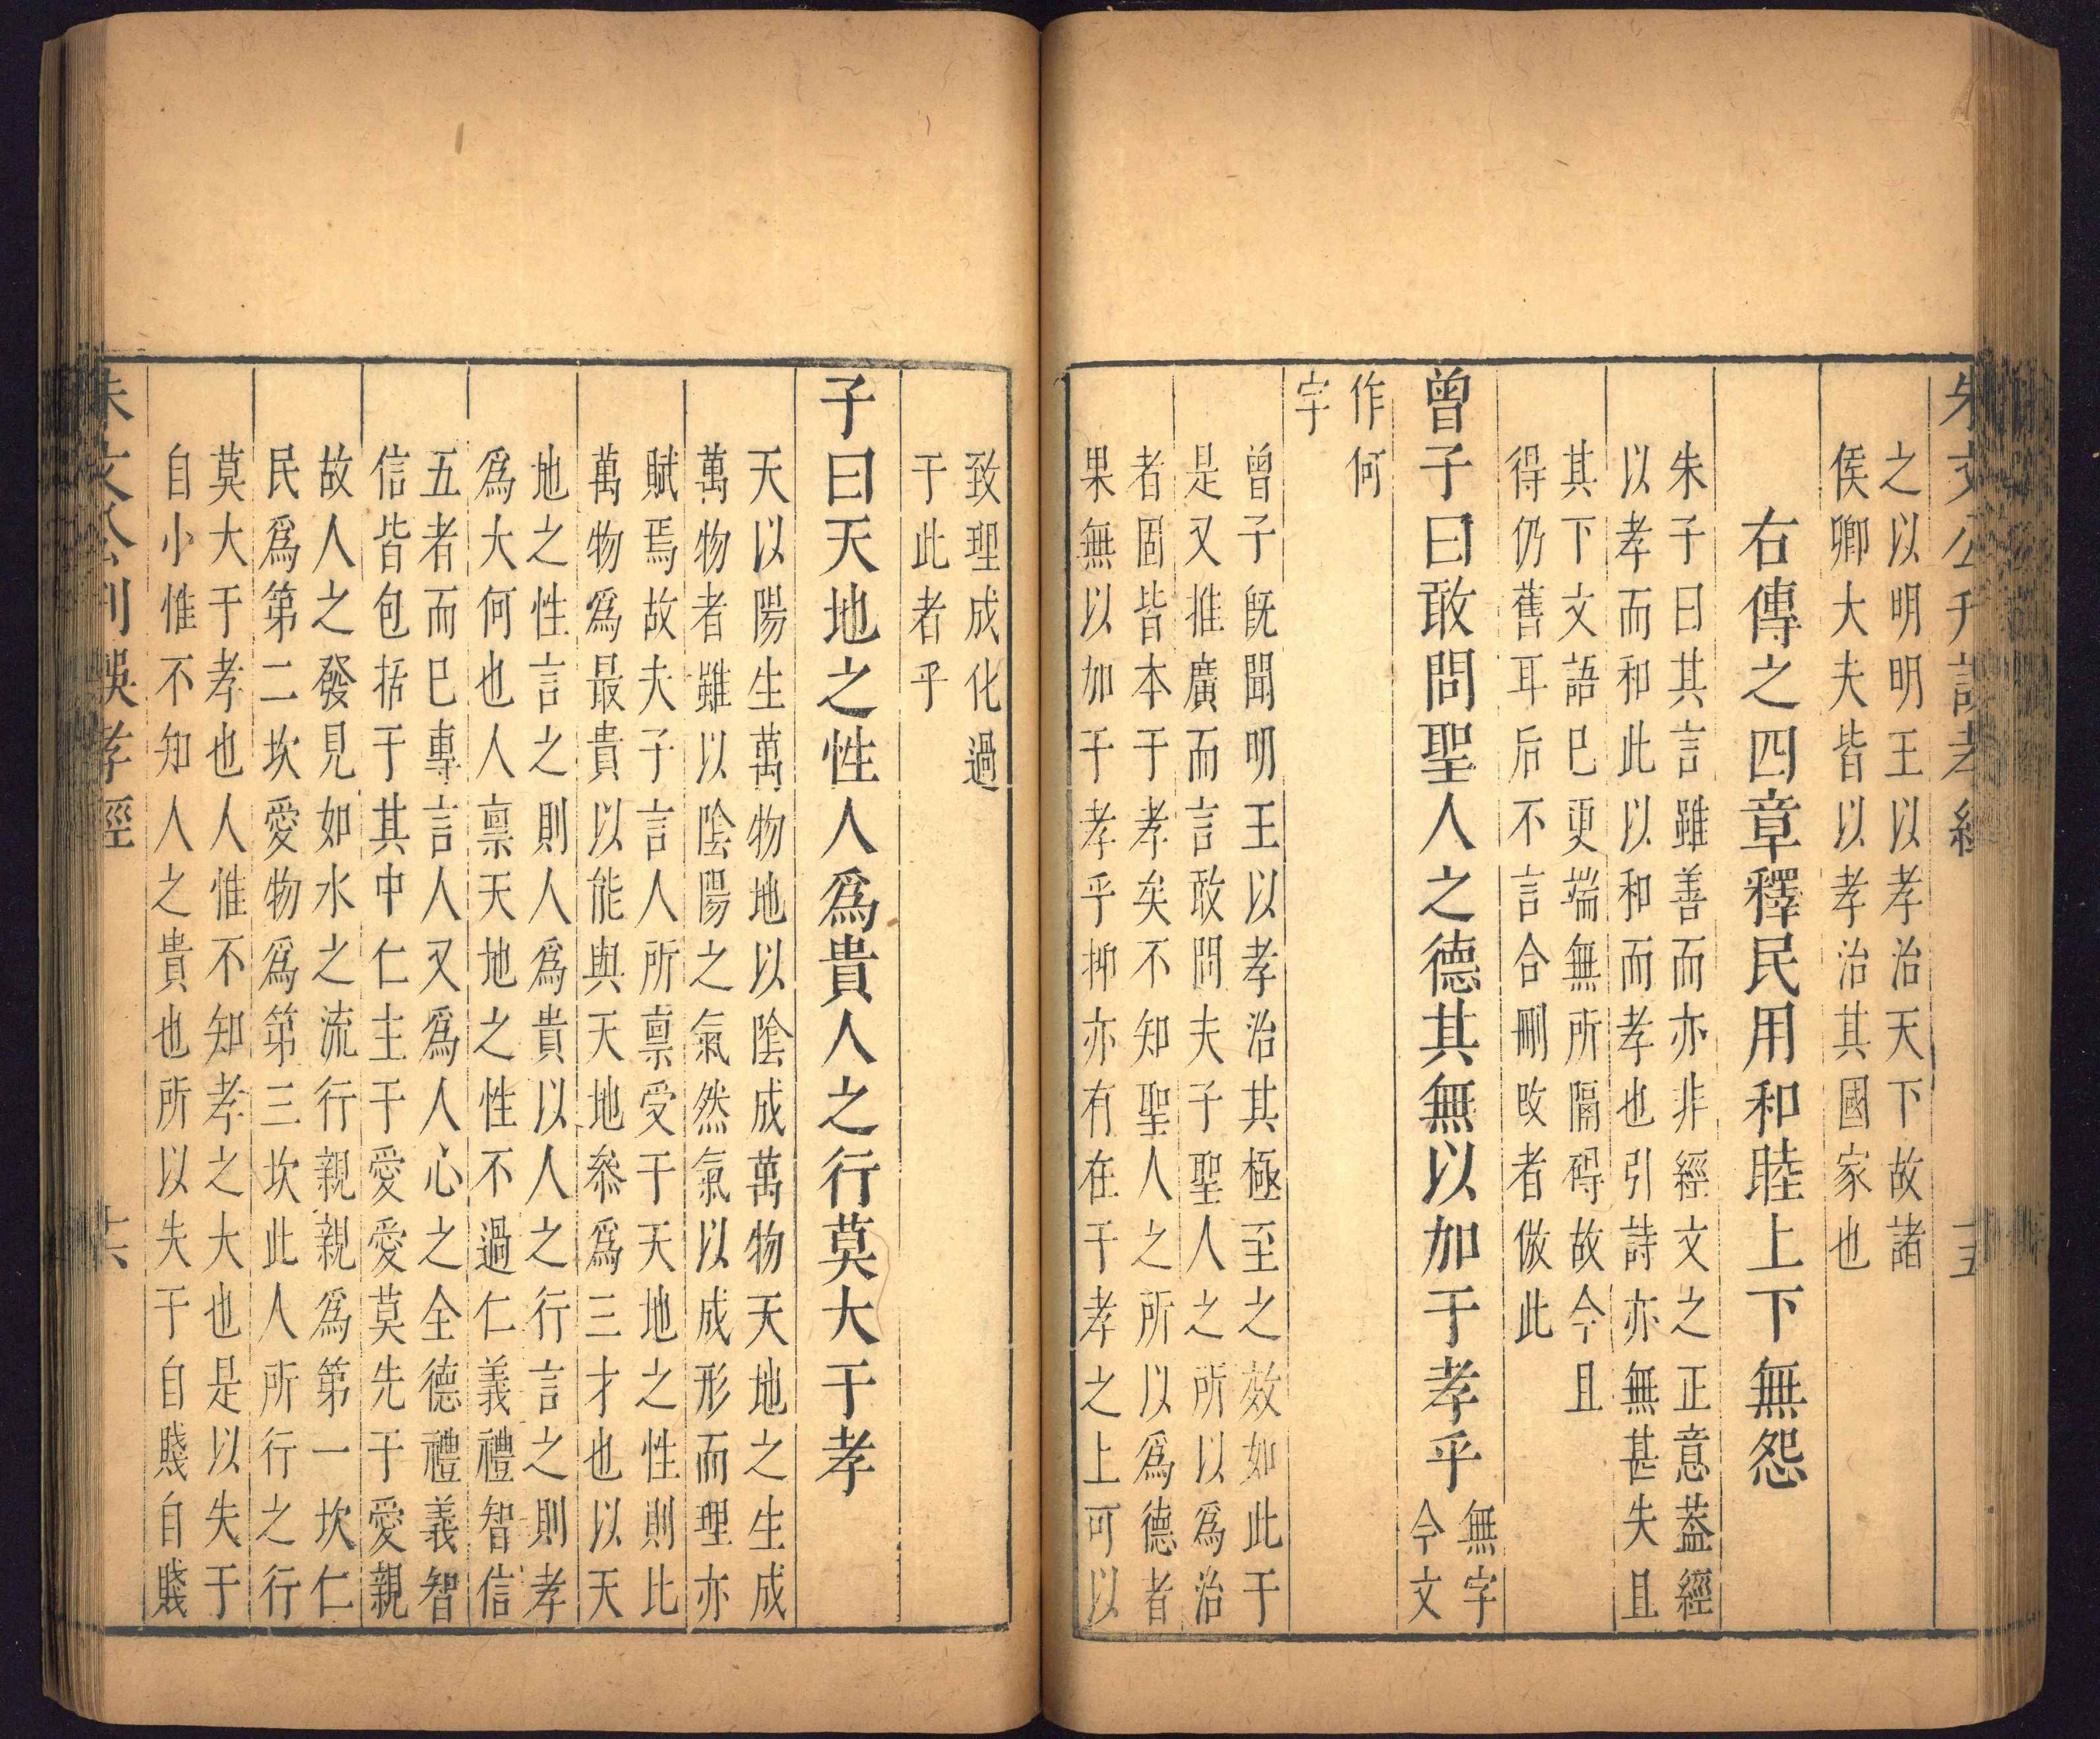 朱文公刋誤孝經
十五
之以明明王以孝治天下故諸
侯卿大夫皆以孝治其國家也
右傳之四章釋民用和睦上下無怨
朱子曰其言雖善而亦非經文之正意葢經
以孝而和此以和而孝也引詩亦無甚失且
其下文語巳更端無所隔碍故今且
得仍舊耳后不言合刪改者倣此
曾子曰敢問聖人之德其無以加于孝乎
無字
今文
作何
字
曾子旣聞明王以孝治其極至之效如此于
是又推廣而言敢問夫子聖人之所以為治
者固皆本于孝矣不知聖人之所以爲德者
果無以加于孝乎抑亦有在于孝之上可以
致理成化過
于此者乎
子曰天地之性人爲貴人之行莫大于孝
天以陽生萬物地以陰成萬物天地之生成
萬物者雖以陰陽之氣然氣以成形而理亦
賦焉故夫子言人所禀受于天地之性則比
萬物爲最貴以能與天地叅爲三才也以天
地之性言之則人爲貴以人之行言之則孝
爲大何也人禀天地之性不過仁義禮智信
五者而巳專言人又爲人心之全德禮義智
信皆包括于其中仁主于愛愛莫先于愛親
故人之發見如水之流行親親爲第一坎仁
民爲第二坎愛物爲第三坎此人所行之行
莫大于孝也人惟不知孝之大也是以失于
自小惟不知人之貴也所以失于自賤自賤
朱文公刋誤孝經
十六